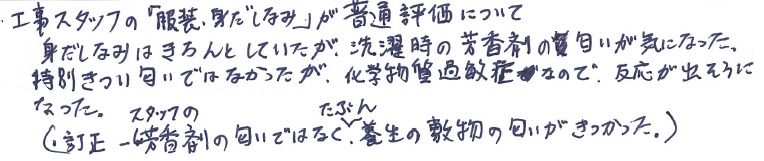 ・工事スタッフの「服装、身だしなみ」が普通評価について
身だしなみはきちんとしていたが、洗濯時の芳香剤の匂いが気になった。
特別きつい匂いではなかったが、化学物質過敏症なので、反応が出そうに
なった。
(・訂正 ースタッフの芳香剤の匂いではなく、たぶん養生の敷物の匂いがきつかった。)